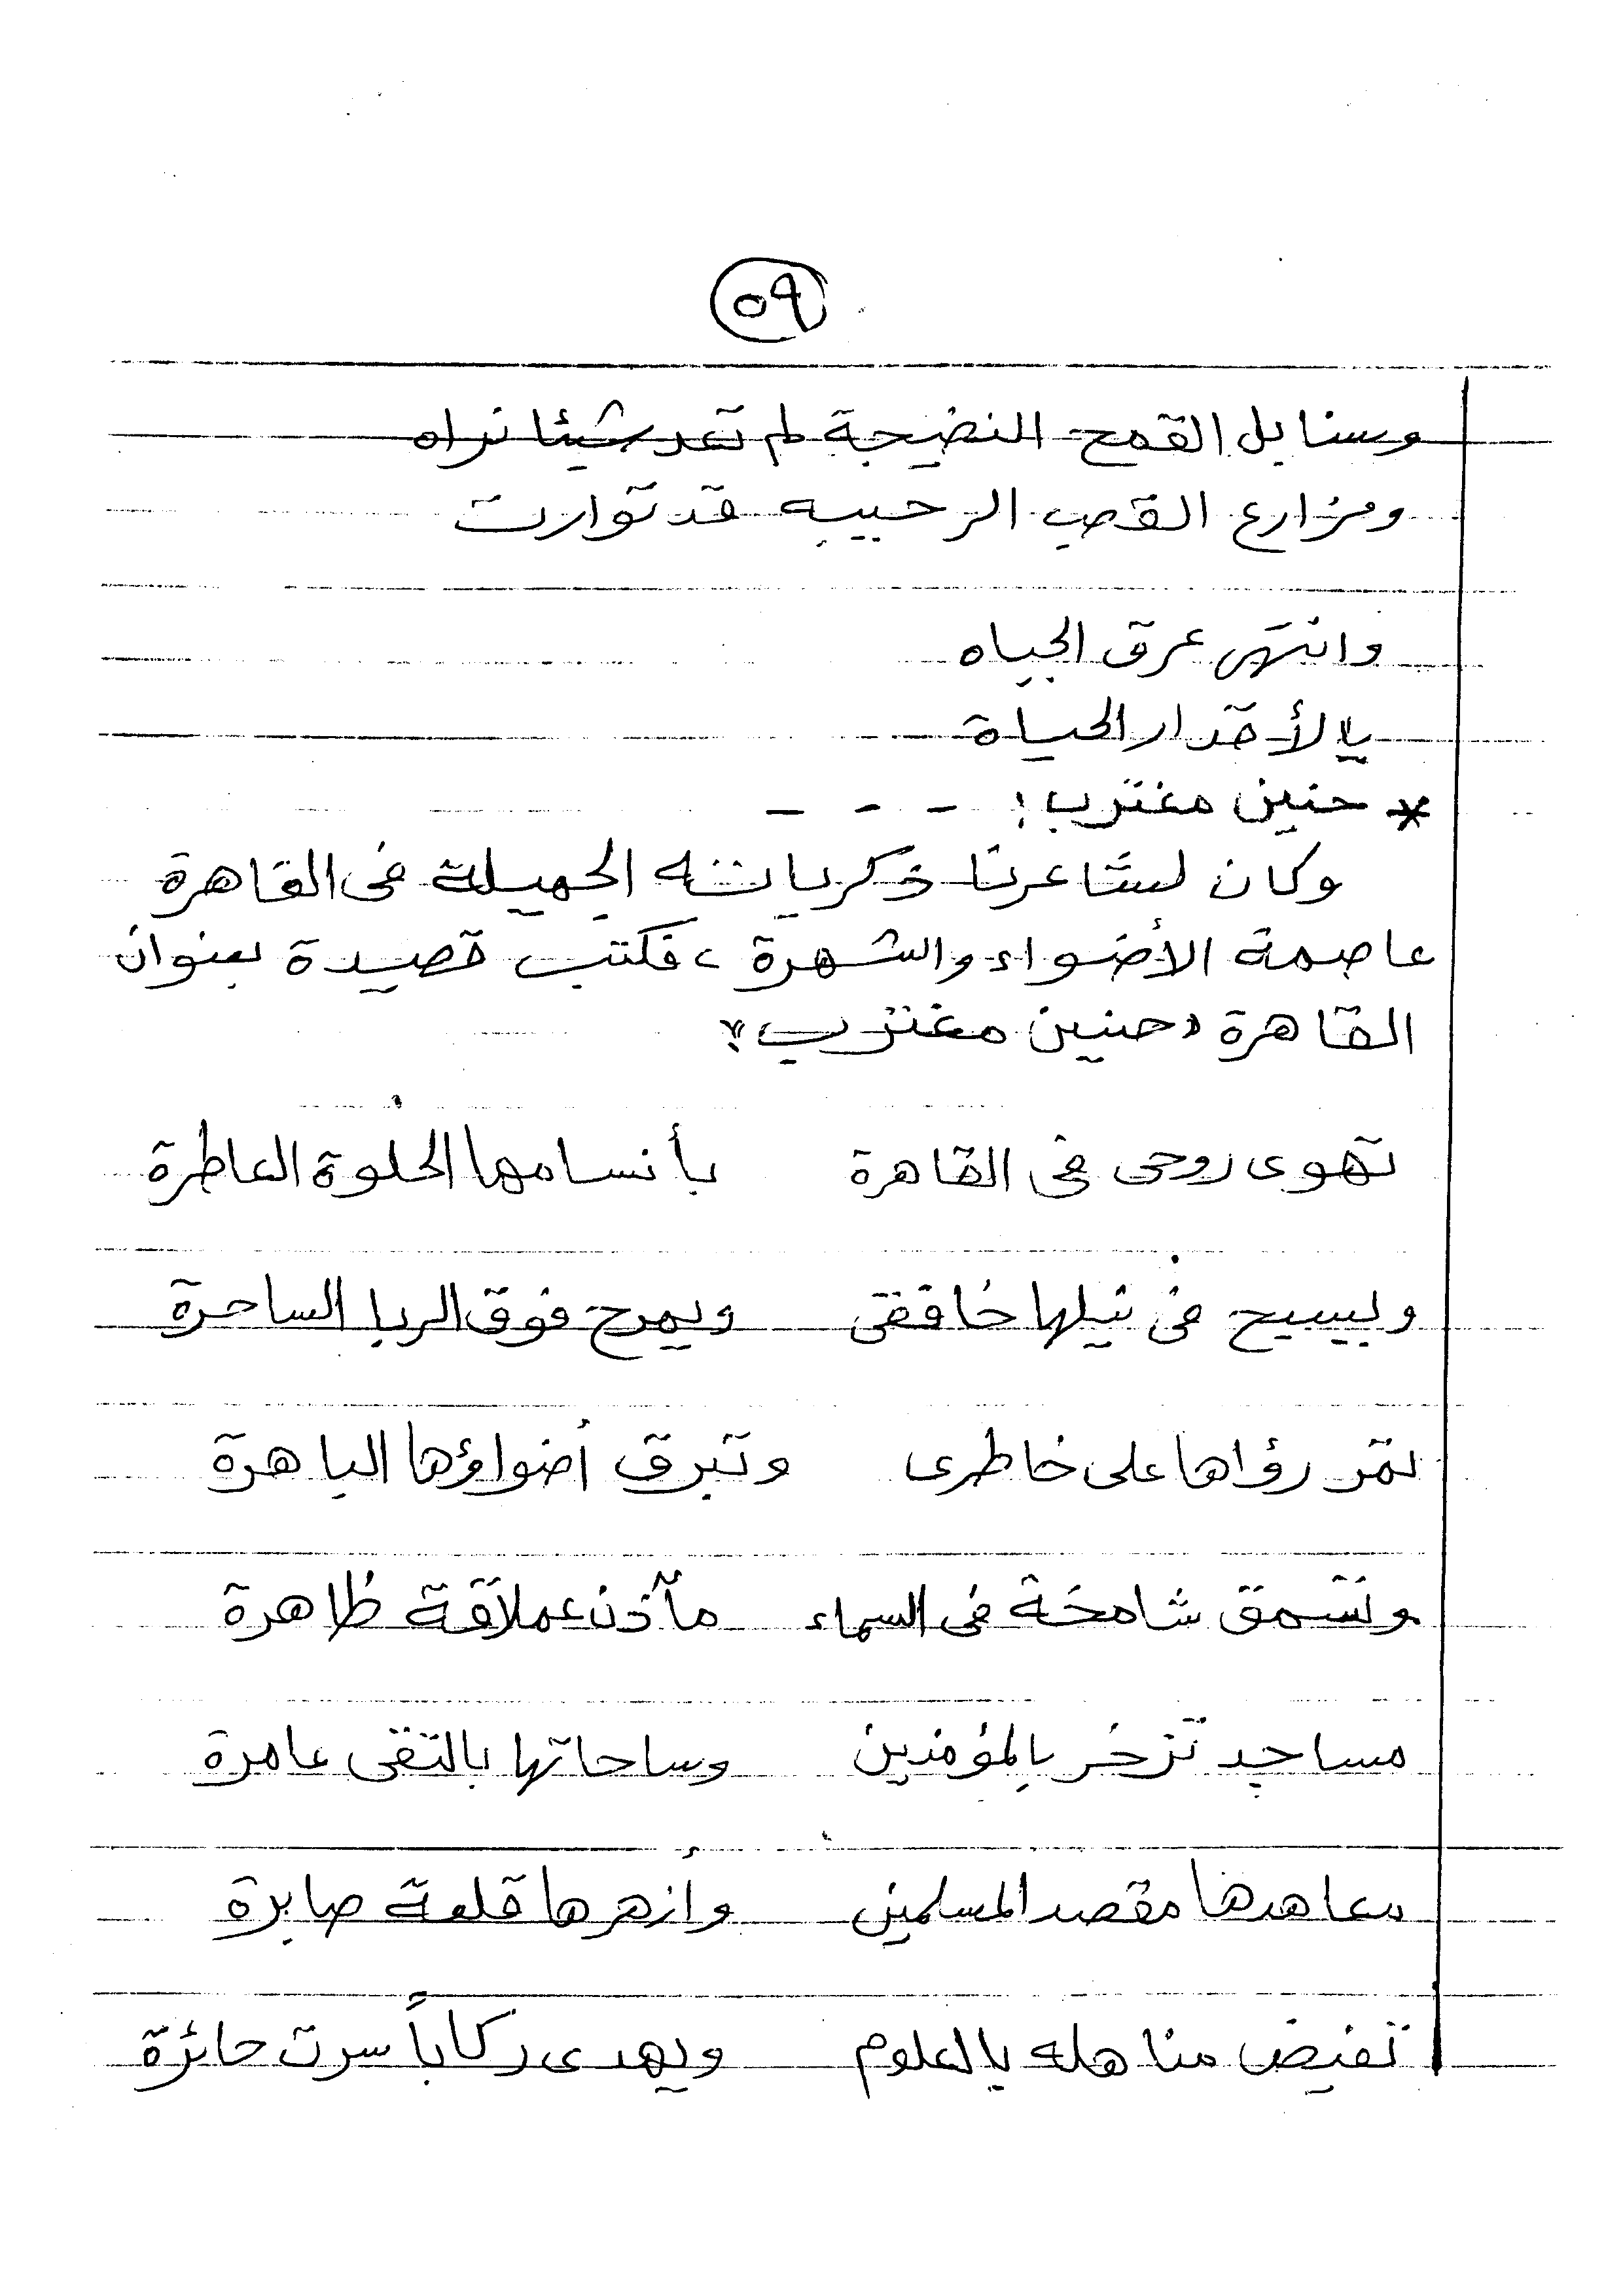 ٥٩
وسنابل القمح النضيجة لم تعد شيئا نراه
ومزارع القصب الرحيبه قد توارت
وانتهى عرق الجباه
يا لأقدار الحياة
* حنين مغترب: - - -
وكان لشاعرنا ذكرياته الجميلة فى القاهرة
عاصمة الأضواء والشهرة، فكتب قصيدة بعنوان
القاهرة "حنين مغترب":
تهوى روحى فى القاهرة بأنسامها الحلوة العاطرة
ويسبح فى نيلها خافقى ويمرح فوق الربا الساحرة
تمر رؤاها على خاطرى وتبرق أضواؤها الباهرة
وتسمق شامخة فى السماء مآذن عملاقة ظاهرة
مساجد تزخر بالمؤمنين وساحاتها بالتقى عامرة
معاهدها مقصد المسلمين وأزهرها قلعة صابرة
تفيض مناهله بالعلوم ويهدى ركاباً سرت حائرة